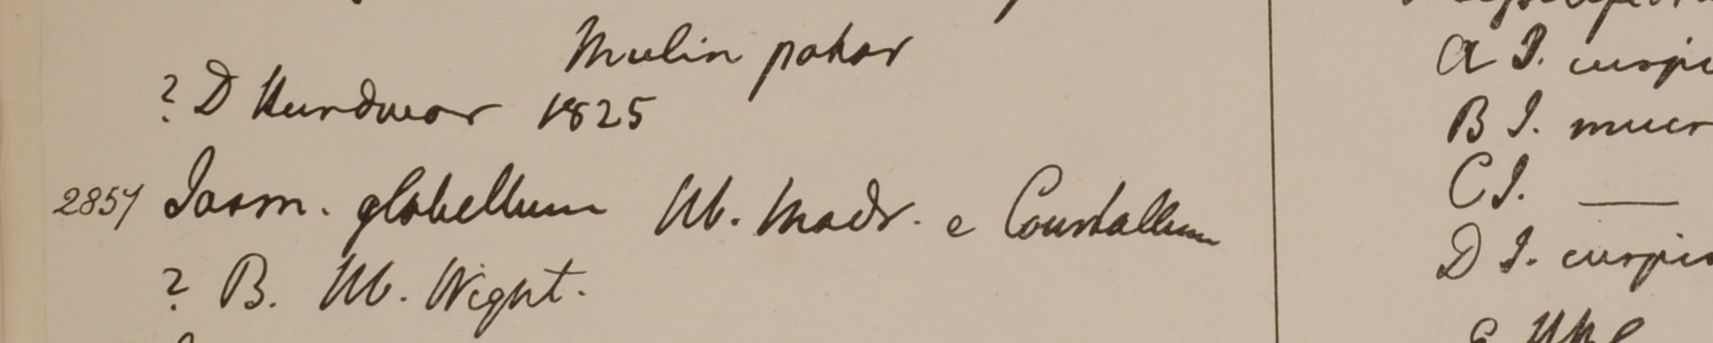 Mulin pahar
? D Hurdwar 1825
2857 Jasm. glabellum Hb. Madr. e Courtallum
? B. Hb. Wight.
A J. cuspi
B J. mucr
C J. —
D J. cuspi